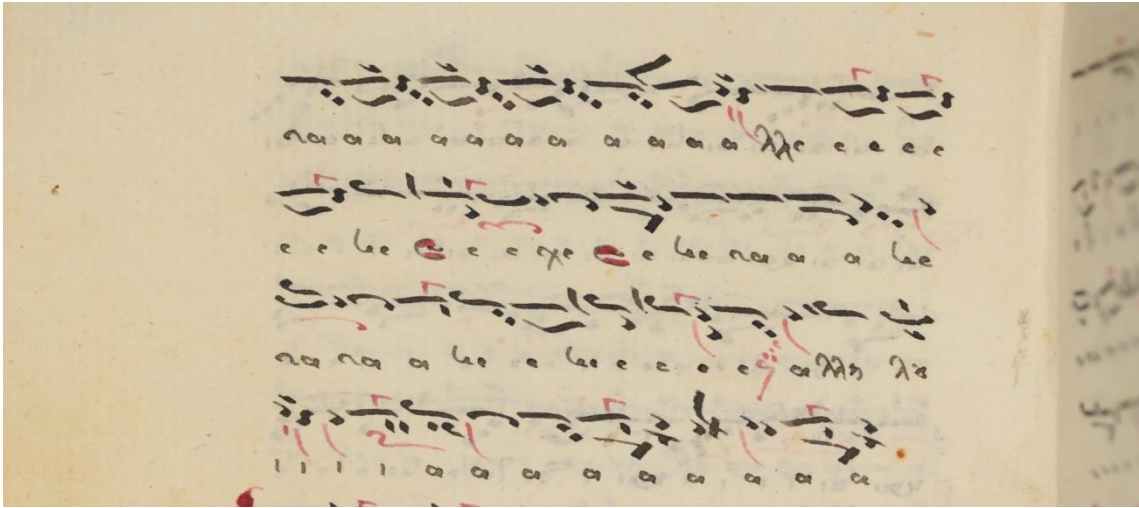 να α α α α α α α α α α λλε ε ε ε ε
ε ε κε ε ε ε χε ε ε κε να α α κε
να να α κε ε κε ε ε ε ε αλλη λȣ
ι ι ι ι α α α α α α α α α